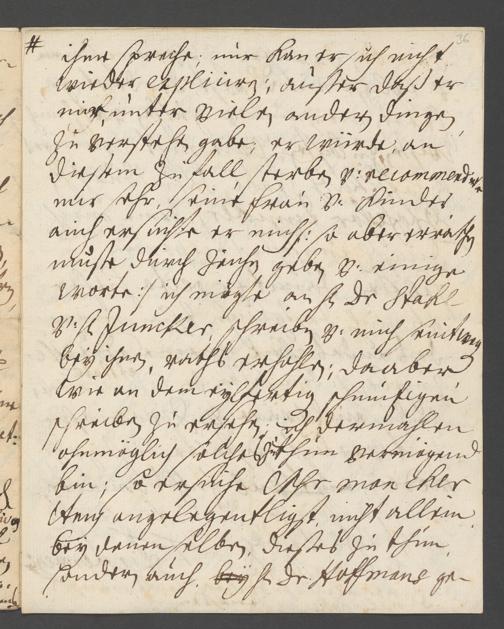 36
# ihm spreche; nur kan er sich nicht
wieder expliciren; außer daß er
mir, unter vielen andern dingen,
zu verstehen gabe, er würde, an
diesem Zufall sterben v: recommendirte
mir sehr, seine frau v: Kinder
auch ersuchte er mich: so aber errathen
muste durch Zeichen geben v: einige
worte :/ ich mögte an H. Dr Stahl
v: H. Juncker, schreiben v: mich seinetwegen
bey ihnen, raths erholen; da aber
wie an dem eylfertig schmutzigen
schreiben zu ersehen, ich dermahlen
ohnmöglich solches zu thun vermögend
bin; so ersuche Ihn mon cher
Ami angelegentligst, nicht allein
bey denenselben, dieses zu thun,
sondern auch, bey H. Dr. Hoffmann ge-